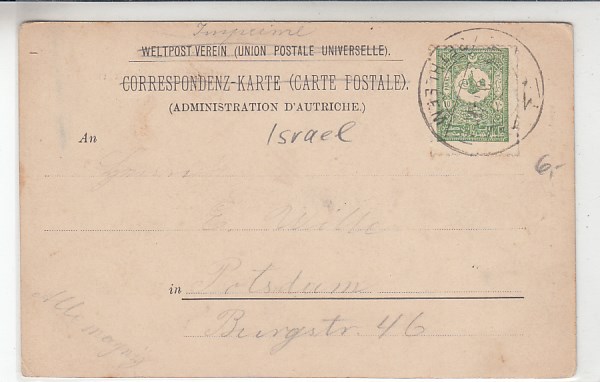 Imprimé
WELTPOSTVEREIN (UNION POSTALE UNIVERSELLE).
CORRESPONDENZ-KARTE (CARTE POSTALE).
(ADMINISTRATION D'AUTRICHE.)
An
Israel
6,-
E. Wille
in Potsdam
Burgstr. 46
Allemagne